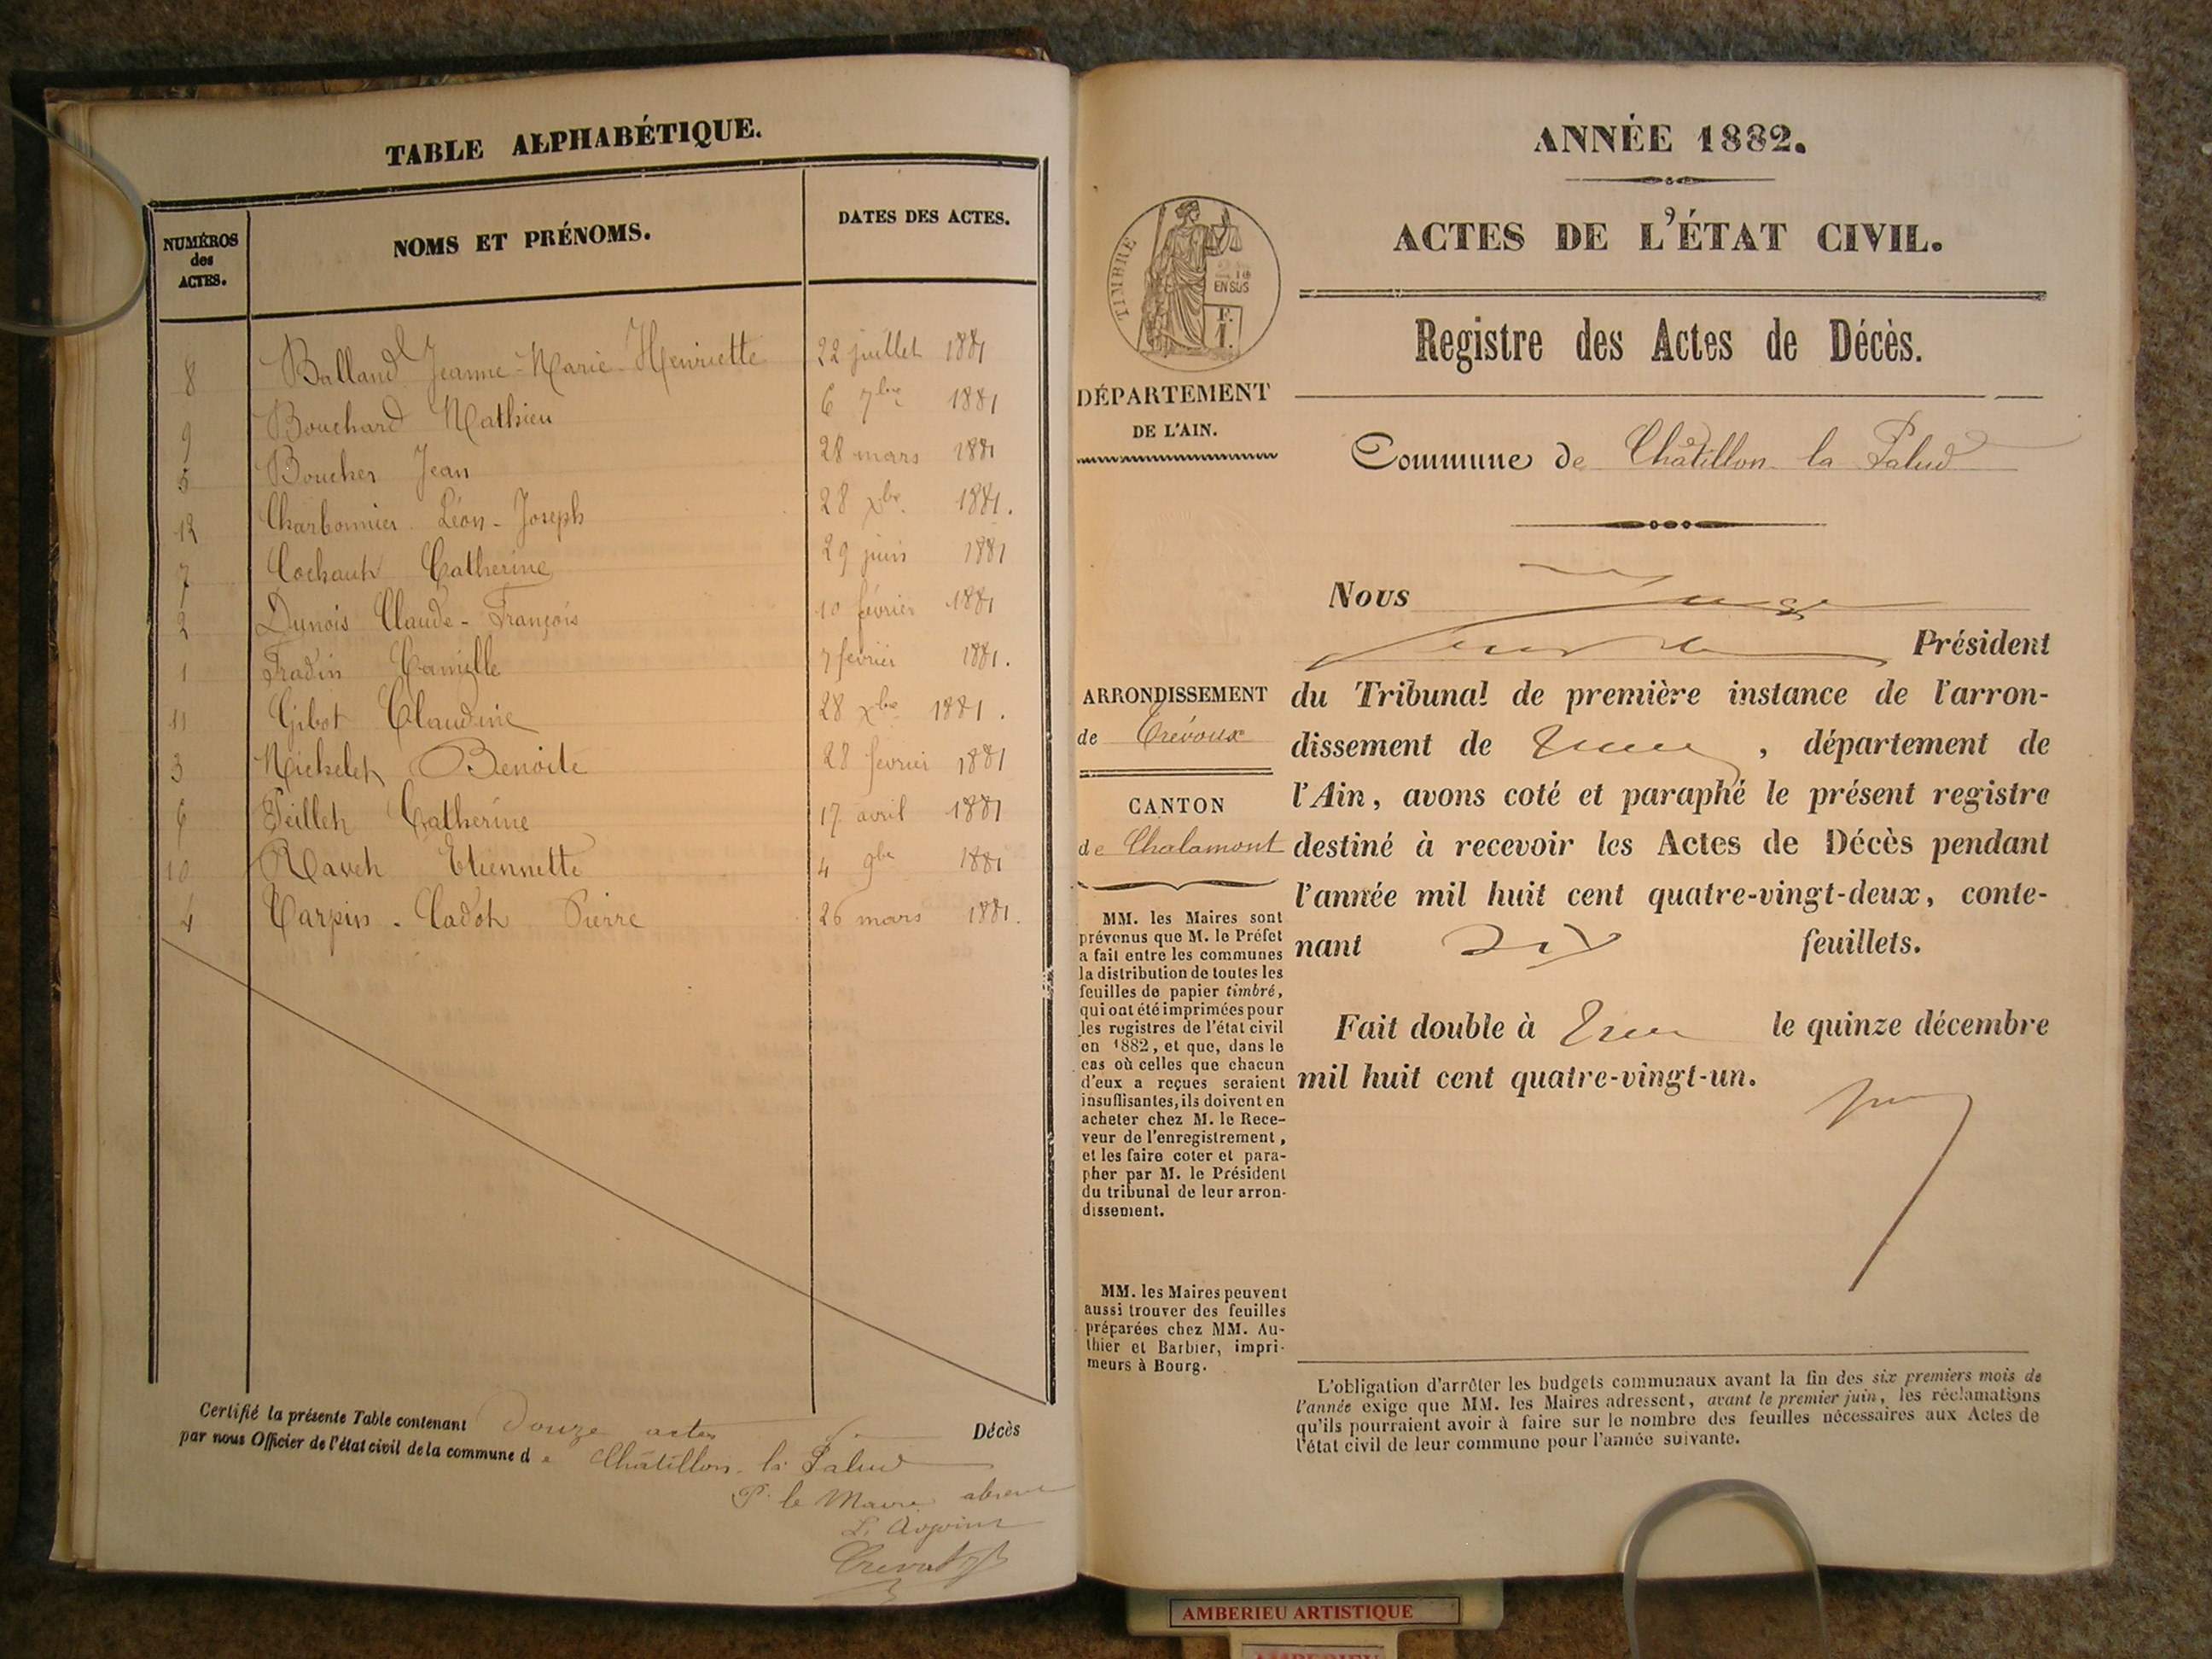 TABLE ALPHABÉTIQUE.
NUMÉROS
des
ACTES.
NOMS ET PRÉNOMS.
DATES DES ACTES.
8 Balland Jeanne-Marie-Henriette 22 juillet 1881
9 Bouchard Mathieu 6 7bre 1881
5 Boucher Jean 28 mars 1881
12 Charbonnier Léon-Joseph 28 xbre 1881.
7 Catherine 29 juin 1881
2 Dunois Claude-François 10 février 1881
1 Fradin Camille 7 février 1881.
11 Gibot Claudine 28 xbre 1881.
3 Michelet Benoite 28 février 1881
6 Peillet Catherine 17 avril 1881
10 Ravet Etiennette 4 9bre 1881
4 Carpin-Cadot Pierre 26 mars 1881.
Certifié la présente Table contenant Douze actes de Décès
par nous Officier de l'état civil de la commune de Châtillon-la Palud
Pr le Maire absent
L'Adjoint
ANNÉE 1882.
ACTES DE L'ÉTAT CIVIL.
TIMBRE
2/10
EN SUS
1 F.
Registre des Actes de Décès.
DÉPARTEMENT
DE L'AIN.
Commune de Châtillon-la Palud
Nous Juge
Président
ARRONDISSEMENT
de Trévoux
CANTON
de Chalamont
du Tribunal de première instance de l'arron-
dissement de Trévoux, département de
l'Ain, avons coté et paraphé le présent registre
destiné à recevoir les Actes de Décès pendant
l'année mil huit cent quatre-vingt-deux, conte-
nant dix feuillets.
Fait double à Trévoux le quinze décembre
mil huit cent quatre-vingt-un.
MM. les Maires sont
prévenus que M. le Préfet
a fait entre les communes
la distribution de toutes les
feuilles de papier timbré,
qui ont été imprimées pour
les registres de l'état civil
en 1882, et que, dans le
cas où celles que chacun
d'eux a reçues seraient
insuffisantes, ils doivent en
acheter chez M. le Rece-
veur de l'enregistrement,
et les faire coter et para-
pher par M. le Président
du tribunal de leur arron-
dissement.
MM. les Maires peuvent
aussi trouver des feuilles
préparées chez MM. Au-
thier et Barbier, impri-
meurs à Bourg.
L'obligation d'arrêter les budgets communaux avant la fin des six premiers mois de
l'année exige que MM. les Maires adressent, avant le premier juin, les réclamations
qu'ils pourraient avoir à faire sur le nombre des feuilles nécessaires aux Actes de
l'état civil de leur commune pour l'année suivante.
AMBERIEU ARTISTIQUE
AMBERIEU